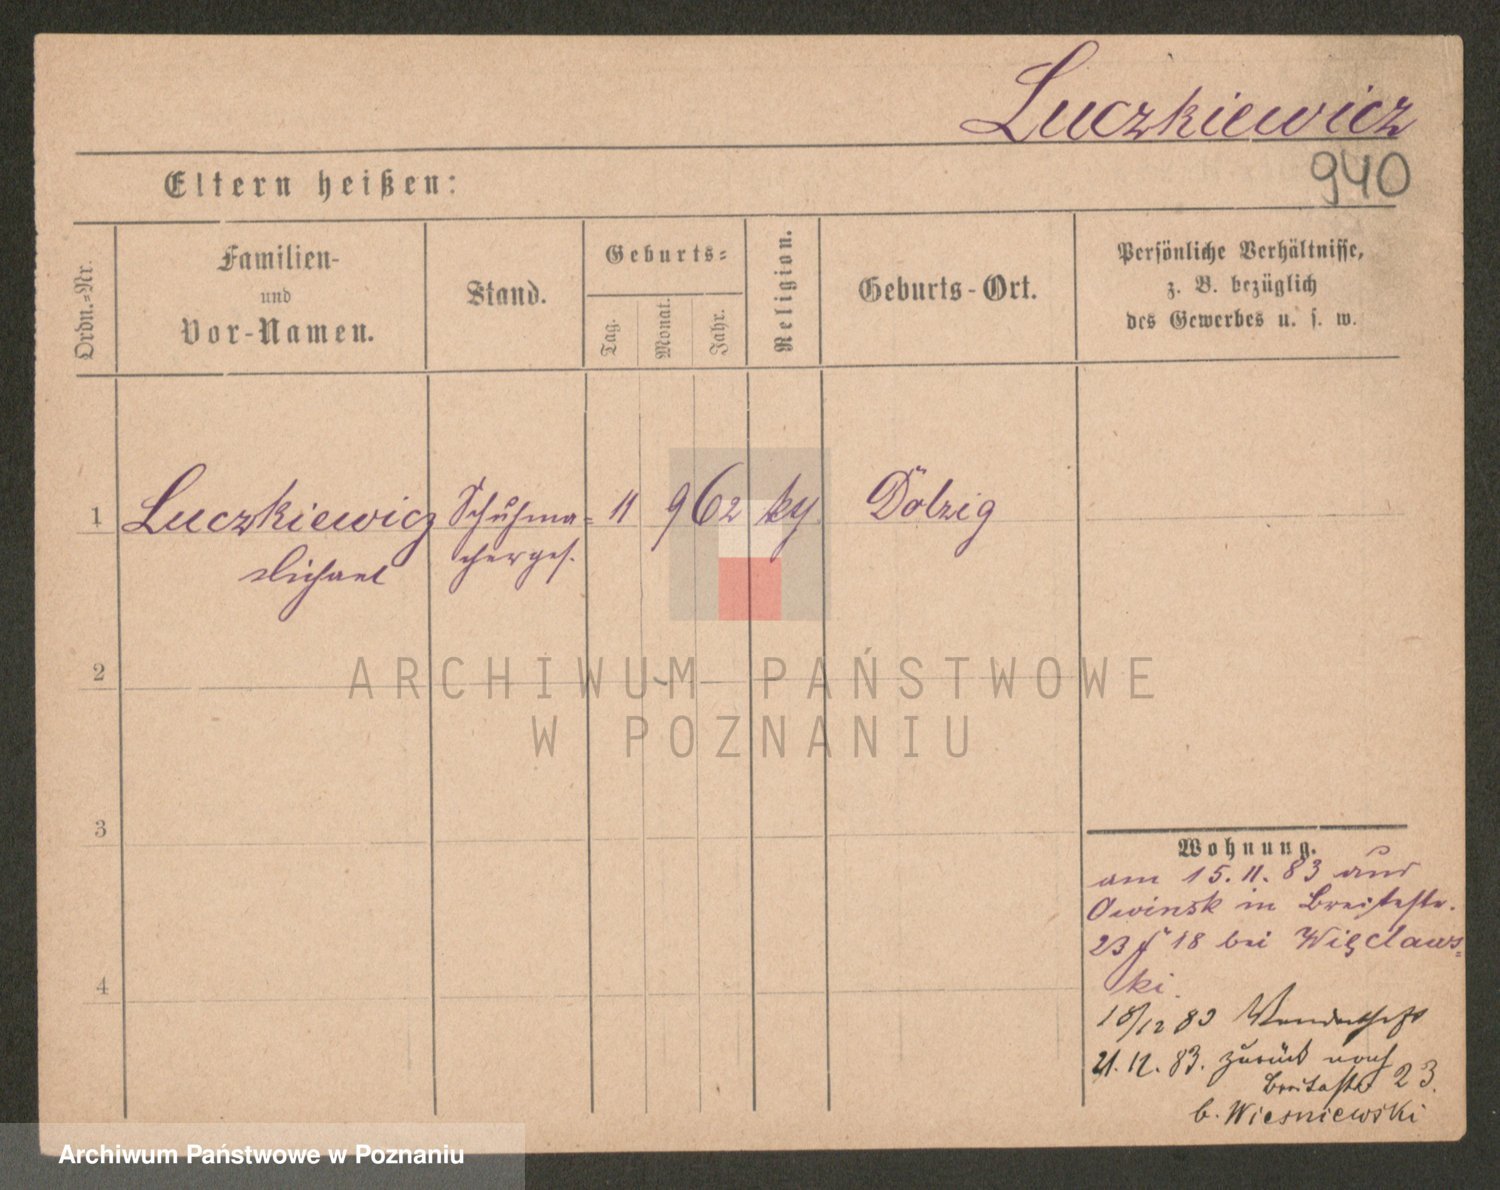 Luczkiewicz
940
Eltern heißen:
Ordn.=Nr.
Familien-
und
Vor-Namen.
Stand.
Geburts=
Tag.
Monat.
Jahr.
Religion.
Geburts-Ort.
Persönliche Verhältnisse,
z. B. bezüglich
des Gewerbes u. s. w.
1 Luczkiewicz Schuhma= 11 9 62 ky Dolzig
Michael cherges.
2
3
4
ARCHIWUM PAŃSTWOWE
W POZNANIU
Wohnung.
am 15. 11. 83 aus
Owinsk in Breitestr.
23 18 bei Więclaws=
ki.
18/12 83
21. 12. 83. zurück nach
Breitestr 23.
b. Wiesniewski
Archiwum Państwowe w Poznaniu